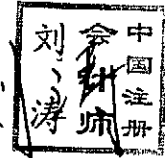 中国注册
会计师
刘涛